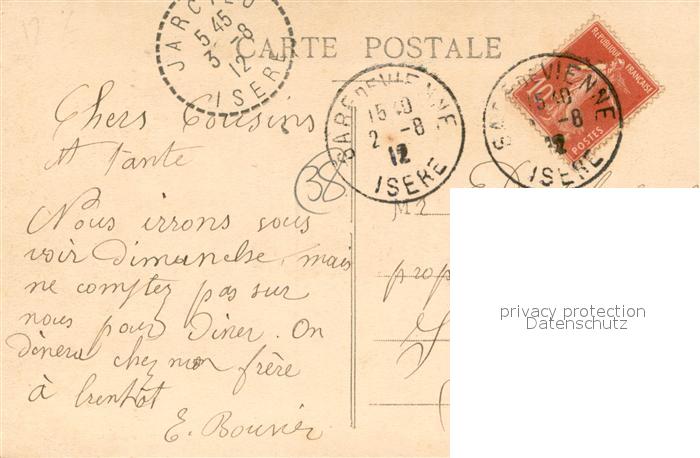 JARCIEU
5 45
3 -8
12
ISERE
CARTE POSTALE
GARE DE VIENNE
15 40
2 -8
12
ISERE
GARE DE VIENNE
15 40
-8
12
ISERE
REPUBLIQUE FRANÇAISE
10
POSTES
38
Chers Cousins
et tante
Nous irrons vous
voir Dimanche mais
ne comptez pas sur
nous pour Diner. On
dinera chez mon frère
à bientôt
E. Bouvier
M
prop
privacy protection
Datenschutz